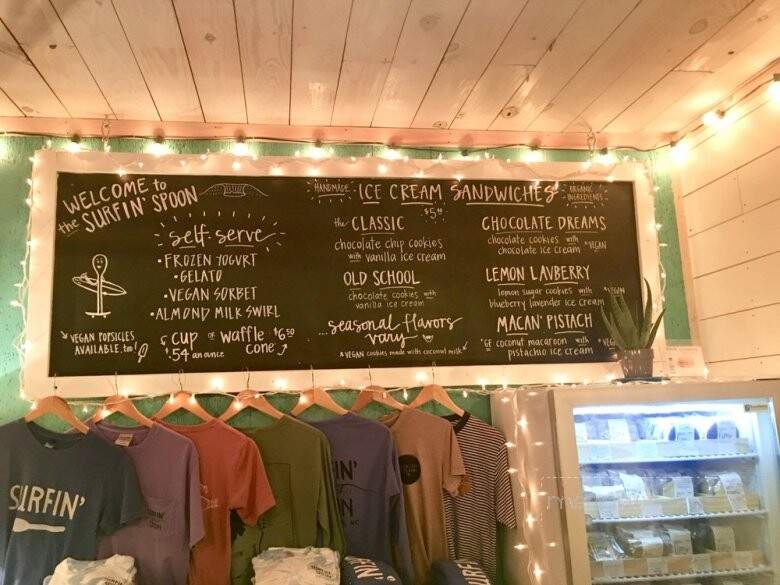 WELCOME to
the SURFIN' SPOON
self-serve
• FROZEN YOGURT
• GELATO
• VEGAN SORBET
• ALMOND MILK SWIRL
VEGAN POPSICLES
AVAILABLE, too!
CUP or waffle
.54 an ounce
cone
$6.50
HANDMADE ICE CREAM SANDWICHES ORGANIC
INGREDIENTS
the CLASSIC
chocolate chip cookies
with vanilla ice cream
OLD SCHOOL
chocolate cookies with
vanilla ice cream
...seasonal flavors
vary
*VEGAN cookies made with coconut milk
CHOCOLATE DREAMS
chocolate cookies with
chocolate ice cream *VEGAN
LEMON LAVBERRY
lemon sugar cookies with *VEGAN
blueberry lavender ice cream
MACAN' PISTACH
*GF coconut macaroon with
pistachio ice cream
SURFIN'